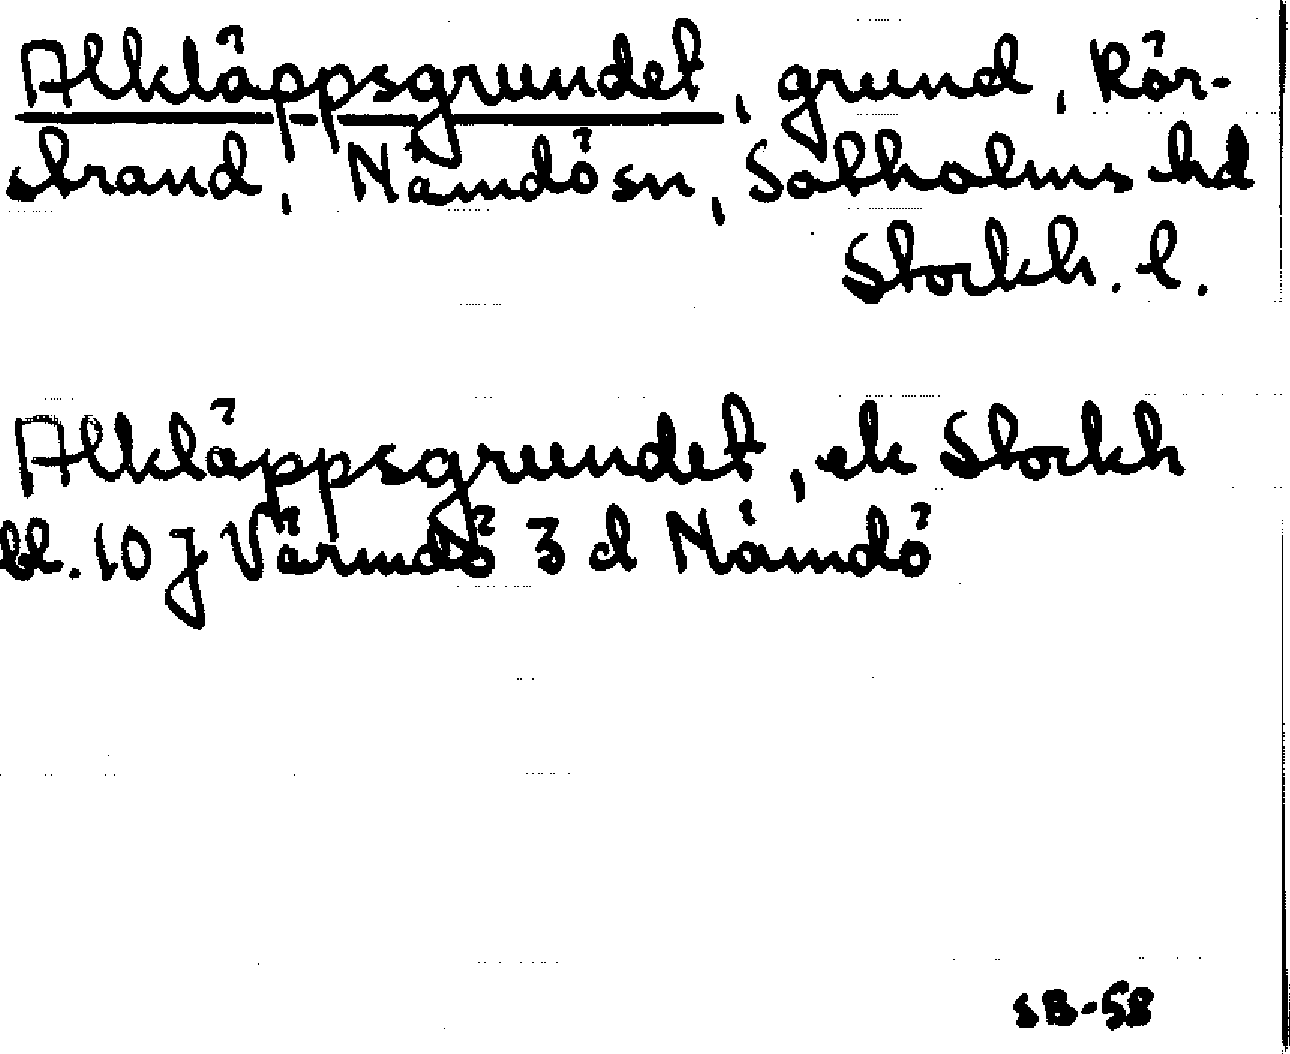 Alkläppsgrundet, grund, Rör-
strand, Nämdö sn, Sotholms hd
Stockh. l.
Alkläppsgrundet, ek Stockh
bl. 10 J Värmdö 3 d Nämdö
SB-58